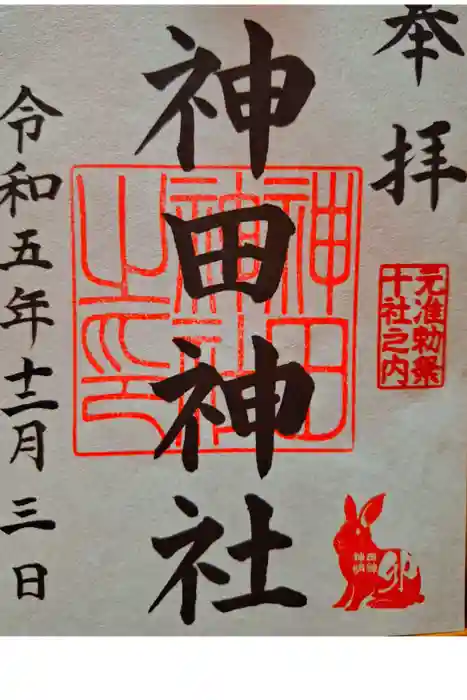 奉拝
元准勅祭
十社之内
神田神社
神田
神社
之印
神田
明神
卯
令和五年十二月三日